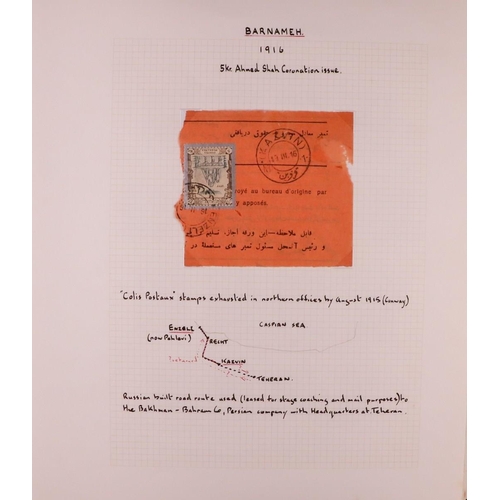 BARNAMEH.
1916
5kr. Ahmed Shah Coronation issue.
نمبر
دریافتی
KAZ
oyé au bureau d'origine par
y apposés.
قابل ملاحظه
این ورقه اجازه تسلیم
و رئیس
مسئول نمبر های
در
"Colis Postaux" stamps exhausted in northern offices by August 1915 (Conway)
CASPIAN SEA
ENZELI
(now Pahlavi)
RECHT
KAZVIN
TEHERAN.
Russian built road route used (leased for stage coaching and mail purposes) to
the Bakhman - Bahram Co, Persian company with Headquarters at Teheran.